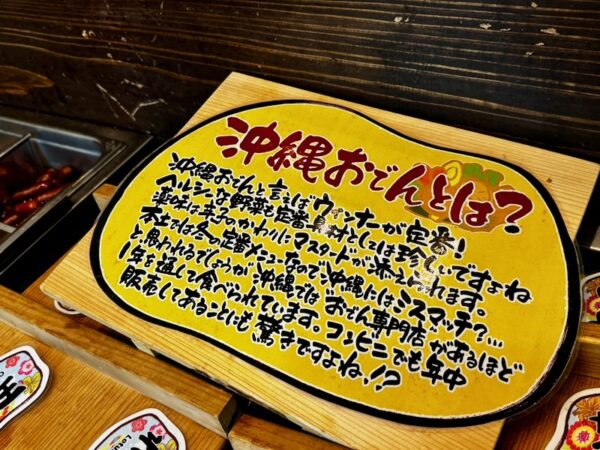 沖縄おでんとは?
沖縄おでんと言えばウィンナーが定番!
ヘルシュな野菜も定番具材としては珍しいですよね
薬味は辛子のかわりにマスタードが添えられます。
本土では冬の定番メニューなので沖縄にはミスマッチ?…
と思われるでしょうが沖縄ではおでん専門店があるほど
1年を通して食べられています。コンビニでも年中
販売してあることにも驚きですよね!?